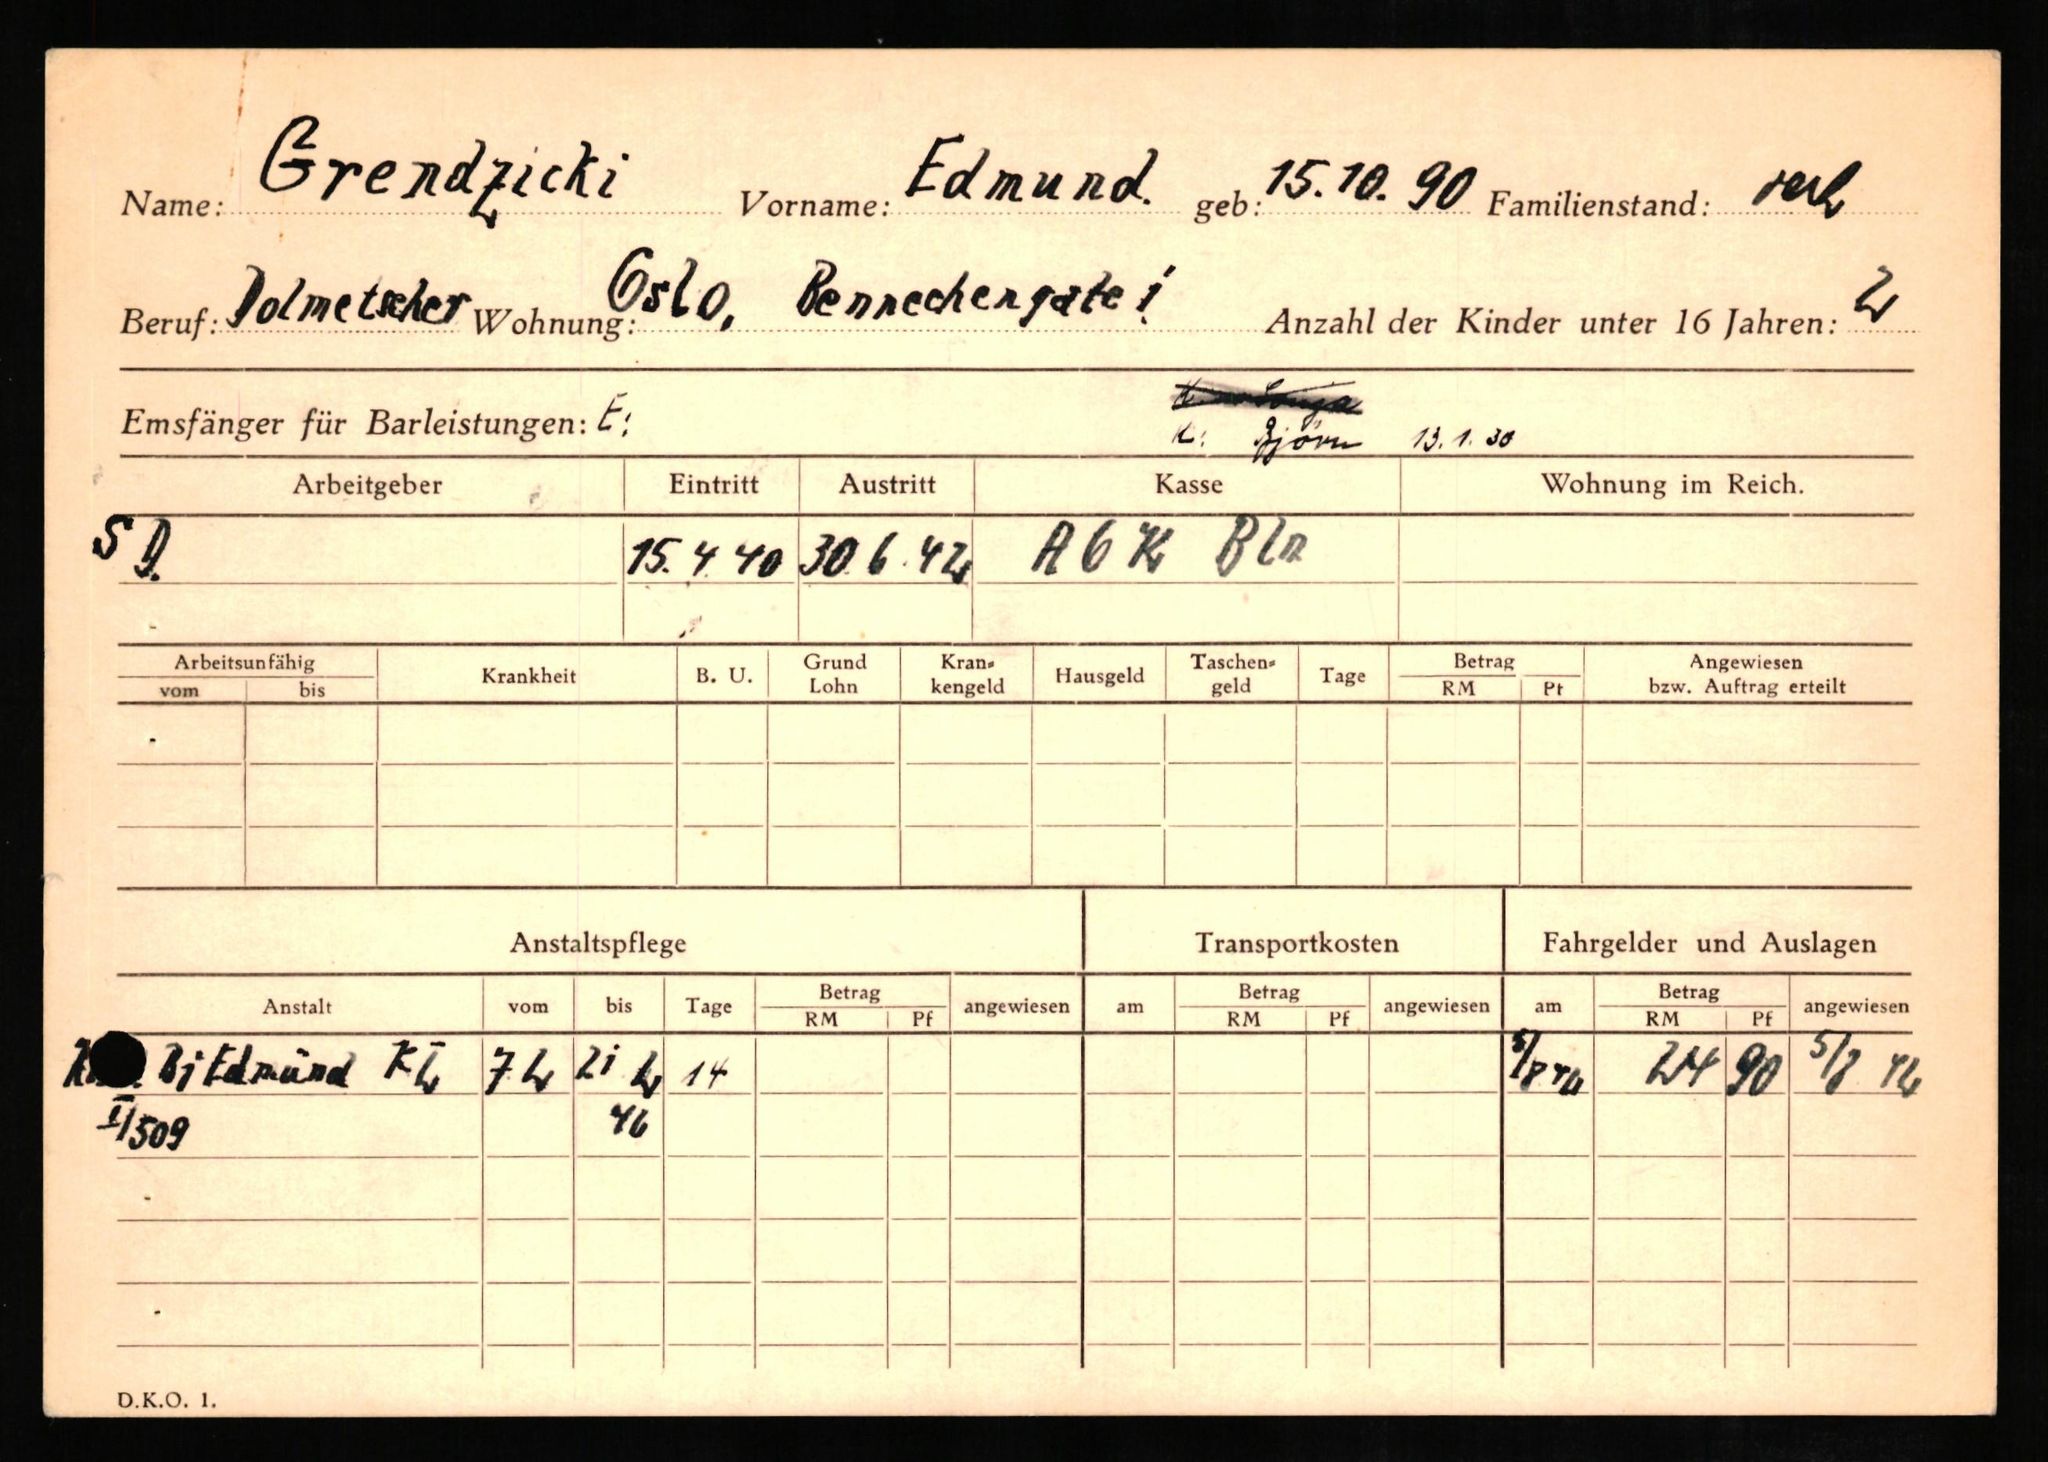 Name: Grendzicki Vorname: Edmund. geb: 15.10.90 Familienstand: verh
Beruf: Dolmetscher Wohnung: Oslo, Bennechengate 1 Anzahl der Kinder unter 16 Jahren: 2
K: Sonja
Emsfänger für Barleistungen: E: K: Björn 13.1.30
Arbeitgeber Eintritt Austritt Kasse Wohnung im Reich.
S D. 15.4.40 30.6.42 A O K Bln
Arbeitsunfähig Krankheit B. U. Grund Lohn Kran-kengeld Hausgeld Taschen-geld Tage Betrag Angewiesen bzw. Auftrag erteilt
vom bis RM Pf
Anstaltspflege Transportkosten Fahrgelder und Auslagen
Anstalt vom bis Tage Betrag angewiesen am Betrag angewiesen am Betrag angewiesen
RM Pf RM Pf RM Pf
Edmund 7.2 21.2 14 24 90
II/509
D.K.O. 1.